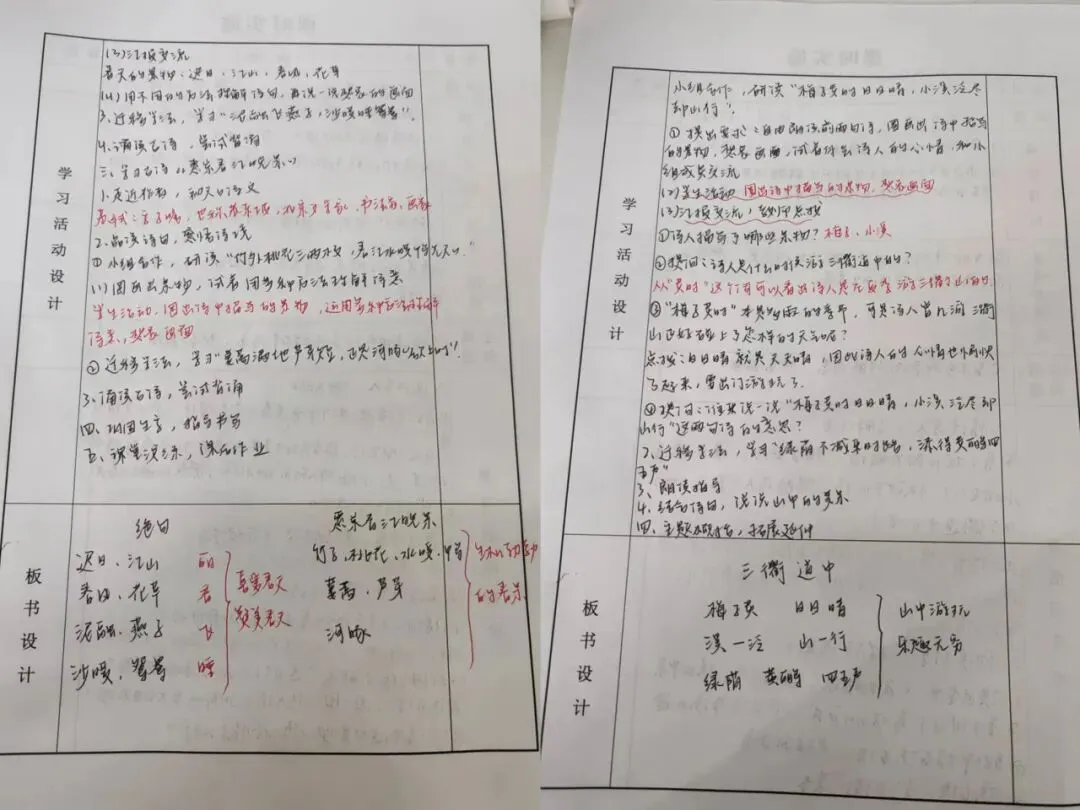 (3)汇报交流
春天的景物:迟日、江山、春风、花草
(4)用不同的方法理解诗句,再说一说想象的画面
3、迁移学法,学习"泥融飞燕子,沙暖睡鸳鸯"。
4、诵读古诗,尝试背诵
三、学习古诗《惠崇春江晚景》
1、走近作者,和大意
苏轼:字子瞻,也称苏东坡,北宋文学家、书法家、画家
2、品读诗句,感悟诗境
①小组合作,研读"竹外桃花三两枝,春江水暖鸭先知"。
(1)圈画出景物,试着用多种方法理解诗意
学生活动:圈出诗中描写的景物,运用多种方法理解
诗意,想象画面
②迁移学法,学习"蒌蒿满地芦芽短,正是河豚欲上时"。
3、诵读古诗,尝试背诵
四、巩固生字,指导书写
五、课堂演练,课后作业
学习活动设计
板书设计
绝句
迟日、江山 丽
春风、花草 香
泥融、燕子 飞
沙暖、鸳鸯 睡
喜爱春天
赞美春天
惠崇春江晚景
竹子、桃花、水暖、鸭
蒌蒿、芦芽
河豚
生机勃勃
的春景
小组合作,研读"梅子黄时日日晴,小溪泛尽
却山行"。
①提出要求:自由朗读前两句诗,圈画出诗中描写
的景物,想象画面,试着体会诗人的心情,和小
组成员交流
(2)学生活动:圈出诗中描写的景物,想象画面
(3)汇报交流,教师点拨
①诗人描写了哪些景物?梅子、小溪
②提问:诗人是什么时候游三衢道中的?
从"黄时"这个词可以看出诗人是在夏季游三衢山的。
③"梅子黄时"本是的季节,可是诗人曾几游三衢
山正好碰上了怎样的天气呢?
点拨:日日晴就是天天晴,因此诗人的心情也愉快
了起来,要出门游玩了。
④提问:谁来说一说"梅子黄时日日晴,小溪泛尽却
山行"这两句诗的意思?
2、迁移学法,学习"绿阴不减来时路,添得黄鹂四
五声"
3、朗读指导
4、结合诗句,说说山中的美景
四、主题,拓展延伸
学习活动设计
板书设计
三衢道中
梅子黄 日日晴
溪—泛 山—行
绿荫 黄鹂 四五声
山中游玩
乐趣无穷